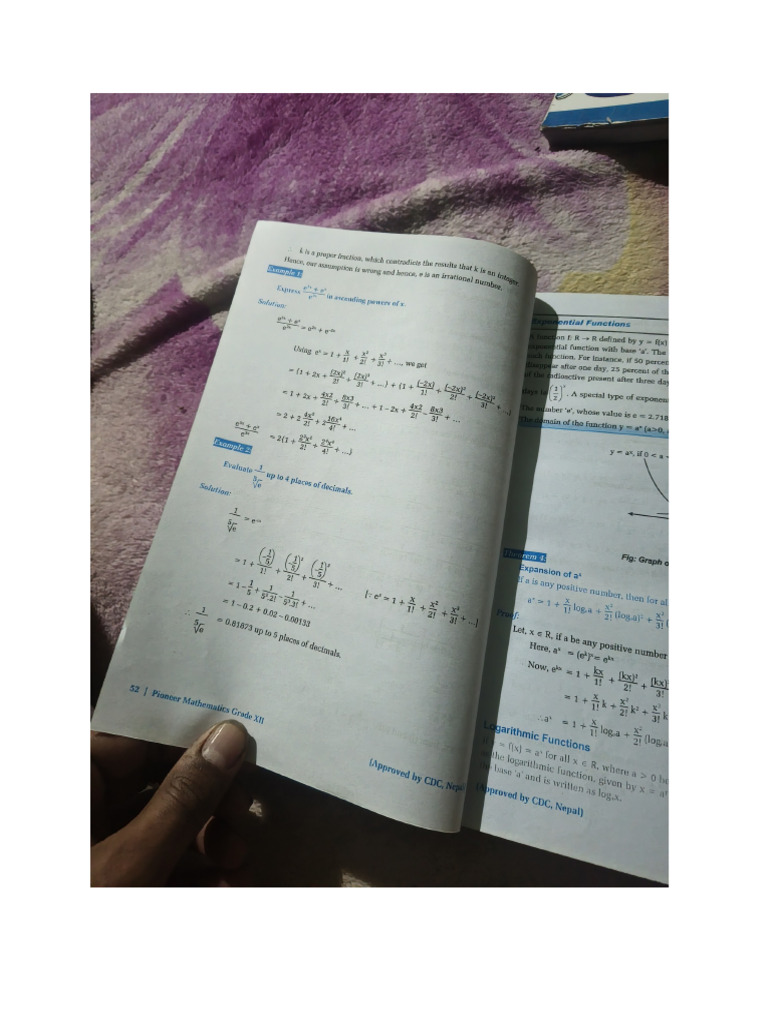 ∴ k is a proper fraction, which contradicts the results that k is an integer.
Hence, our assumption is wrong and hence, e is an irrational number.
Example 1:
Express (e⁵ˣ + eˣ)/e³ˣ in ascending powers of x.
Solution:
(e⁵ˣ + eˣ)/e³ˣ = e²ˣ + e⁻²ˣ
Using eˣ = 1 + x/1! + x²/2! + x³/3! + ..., we get
= {1 + 2x + (2x)²/2! + (2x)³/3! + ...} + {1 + (-2x)/1! + (-2x)²/2! + (-2x)³/3! + ...}
= 1 + 2x + 4x2/2! + 8x3/3! + ... + 1 - 2x + 4x2/2! - 8x3/3! + ...
= 2 + 2 4x²/2! + 2 16x⁴/4! + ...
(e⁵ˣ + eˣ)/e³ˣ = 2{1 + 2²x²/2! + 2⁴x⁴/4! + ...}
Example 2:
Evaluate 1/⁵√e up to 4 places of decimals.
Solution:
1/⁵√e
= 1 + (-1/5)/1! + (-1/5)²/2! + (-1/5)³/3! + ... [∵ eˣ = 1 + x/1! + x²/2! + x³/3! + ...]
= 1 - 1/5 + 1/5².2! - 1/5³.3! + ...
= 1 - 0.2 + 0.02 - 0.00133
∴ 1/⁵√e = 0.81873 up to 5 places of decimals.
52 | Pioneer Mathematics Grade XII
(Approved by CDC, Nepal)
Exponential Functions
function f: R → R defined by y = f(x)
exponential function with base 'a'. The
such function. For instance, if 50 percen
disappear after one day, 25 percent of th
of the radioactive present after three day
days is (1/2)ˣ. A special type of exponen
The number 'e', whose value is e = 2.718
The domain of the function y = aˣ (a>0,
y = aˣ, if 0 < a
Fig: Graph o
Theorem 4.
Expansion of aˣ
If a is any positive number, then for al
aˣ = 1 + x/1! logₑa + x²/2! (logₑa)² + x³/3!
Proof:
Let, x ∈ R, if a be any positive number
Here, aˣ = (eᵏ)ˣ = eᵏˣ
Now, eᵏˣ = 1 + kx/1! + (kx)²/2! + (kx)/3!
= 1 + x/1! k + x²/2! k² + x³/3! k
∴ aˣ = 1 + x/1! logₑa + x²/2! (logₑa
Logarithmic Functions
= f(x) = aˣ for all x ∈ R, where a > 0 be
the logarithmic function, given by x = a
base 'a' and is written as logₐx.
(Approved by CDC, Nepal)